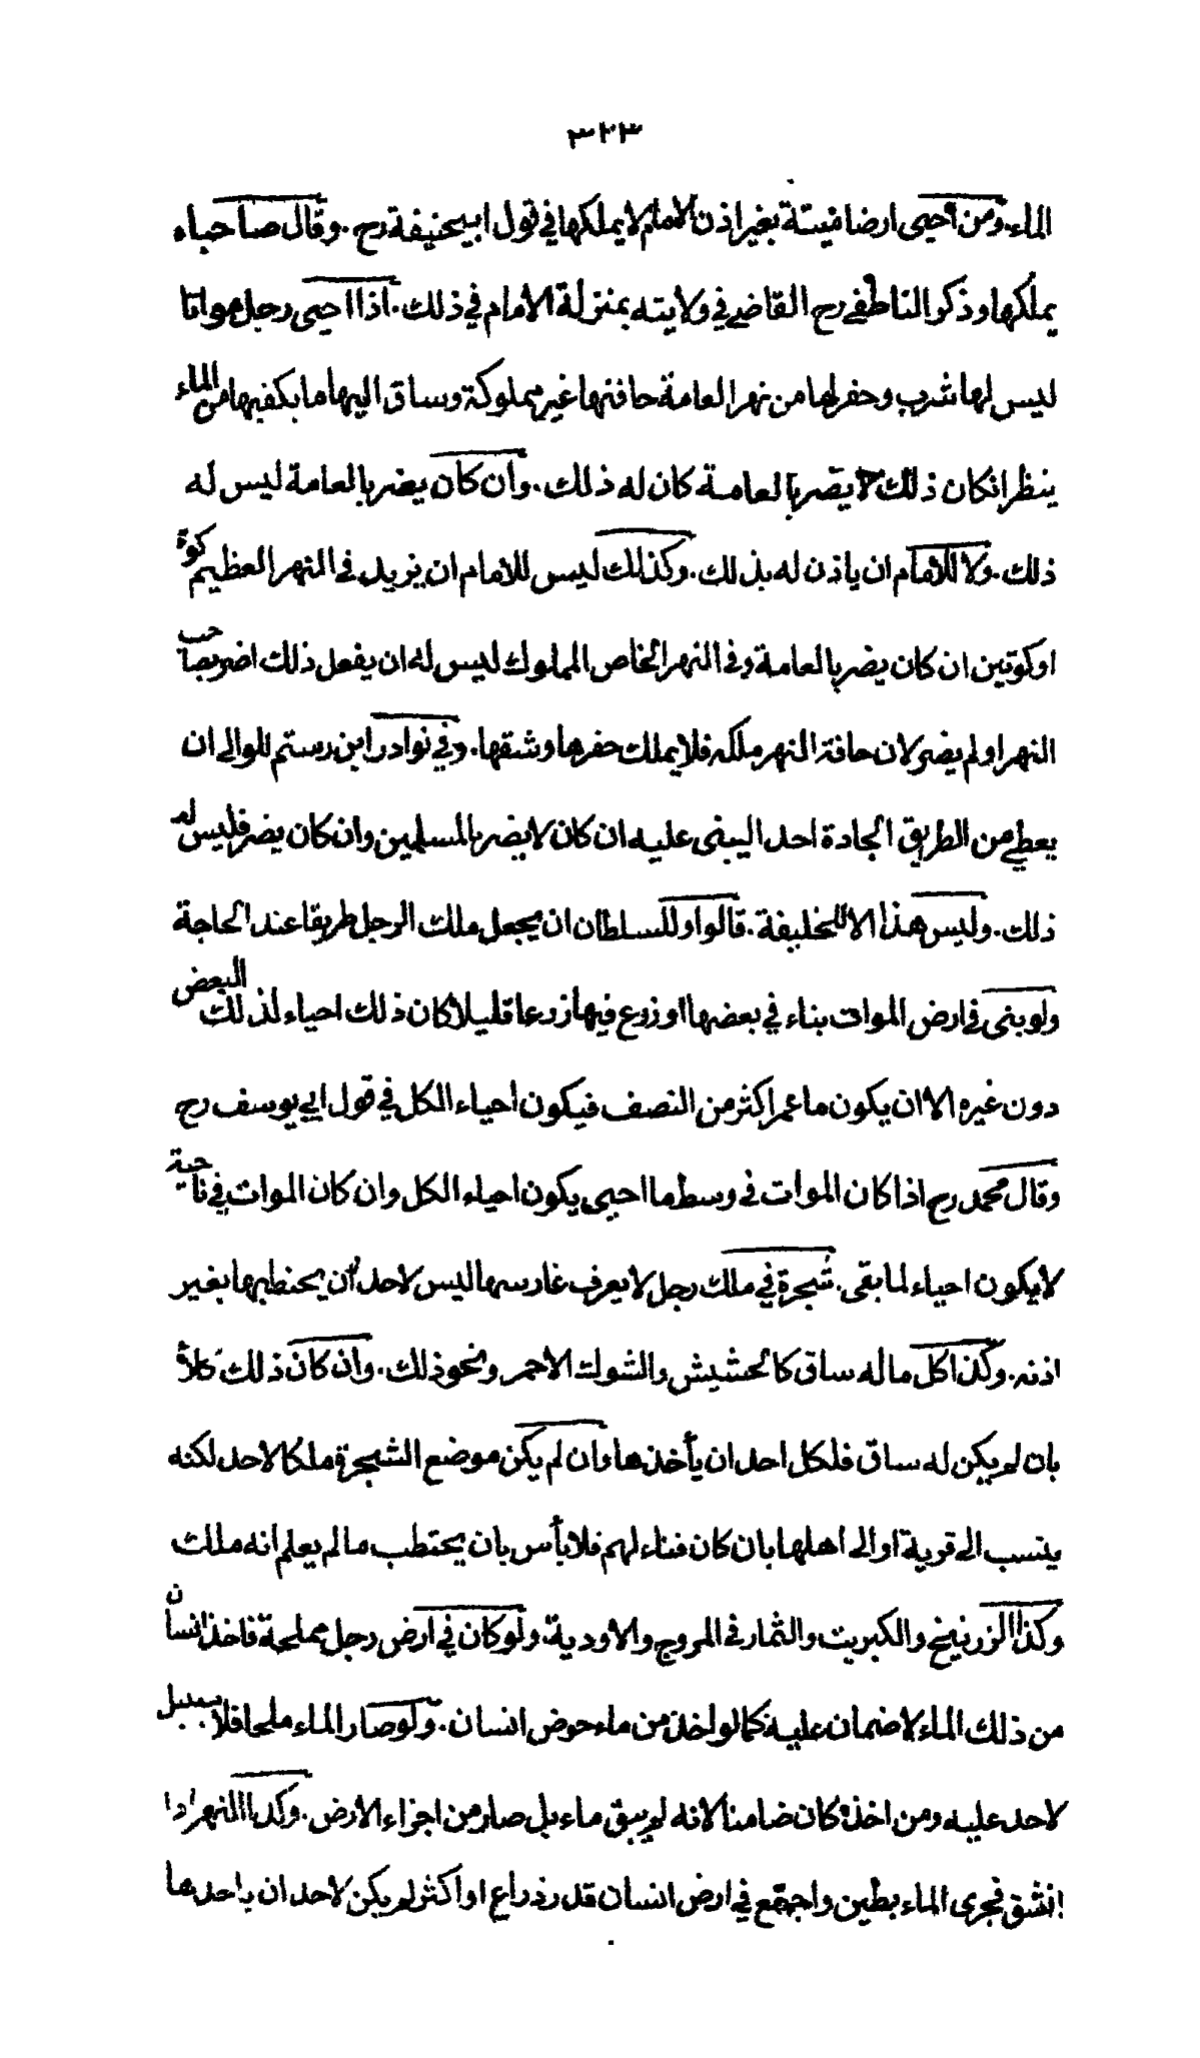 ٣٢٣
الماء. ومن أحيى ارضا ميتة بغير اذن الامام لا يملكها في قول ابيحنيفة رح. وقال صاحباه
يملكها وذكر الناطفي رح القاضي في ولايته بمنزلة الامام في ذلك. اذا احيى رجل مواتا
ليس لها شرب وحفر لها من نهر العامة حافتها غير مملوكة وساق اليها ما يكفيها من الماء
ينظر انكان ذلك لا يضر بالعامة كان له ذلك. وان كان يضر بالعامة ليس له
ذلك. ولا للامام ان ياذن له بذلك. وكذلك ليس للامام ان يزيد في النهر العظيم كوة
او كوتين ان كان يضر بالعامة وفي النهر الخاص المملوك ليس له ان يفعل ذلك اضر بصاحب
النهر اولم يضر لان حافة النهر ملكه فلا يملك حفرها وشقها. وفي نوادر ابن رستم للوالي ان
يعطي من الطريق الجادة احدا ليبنى عليه ان كان لا يضر بالمسلمين وان كان يضر فليس له
ذلك. وليس هذا الا للخليفة. قالوا وللسلطان ان يجعل ملك الرجل طريقا عند الحاجة
ولو بنى في ارض الموات بناء في بعضها او زرع فيها زرعا قليلا كان ذلك احياء لذلك البعض
دون غيره الا ان يكون ما عمر اكثر من النصف فيكون احياء الكل في قول ابي يوسف رح
وقال محمد رح اذا كان الموات في وسط ما احيى يكون احياء الكل وان كان الموات في ناحية
لا يكون احياء لما بقى. شجرة في ملك رجل لا يعرف غارسها ليس لاحد ان يحتطبها بغير
اذنه. وكذا كل ما له ساق كالحشيش والشوك الاحمر ونحو ذلك. وان كان ذلك كلأ
بان لم يكن له ساق فلكل احد ان يأخذها وان لم يكن موضع الشجرة ملكا لاحد لكنه
ينسب الى قرية او الى اهلها بان كان فناء لهم فلا بأس بان يحتطب ما لم يعلم انه ملك
وكذا الزرنيخ والكبريت والثمار في المروج والاودية. ولو كان في ارض رجل مملحة فاخذ انسان
من ذلك الماء لا ضمان عليه كما لو اخذ من ماء حوض انسان. ولو صار الماء ملحا فلا سبيل
لاحد عليه ومن اخذه كان ضامنا لانه لم يبق ماء بل صار من اجزاء الارض. وكذا النهر اذا
انشق فجرى الماء بطين واجتمع في ارض انسان قدر ذراع او اكثر لم يكن لاحد ان ياخذها